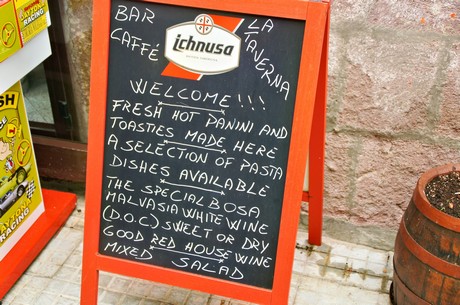 BAR LA
CAFFÉ TAVERNA
ichnusa
WELCOME!!!
FRESH HOT PANINI AND
TOASTIES MADE HERE
A SELECTION OF PASTA
DISHES AVAILABLE
THE SPECIAL BOSA
MALVASIA WHITE WINE
(D.O.C) SWEET OR DRY
GOOD RED HOUSE WINE
MIXED SALAD
RACING
RACING